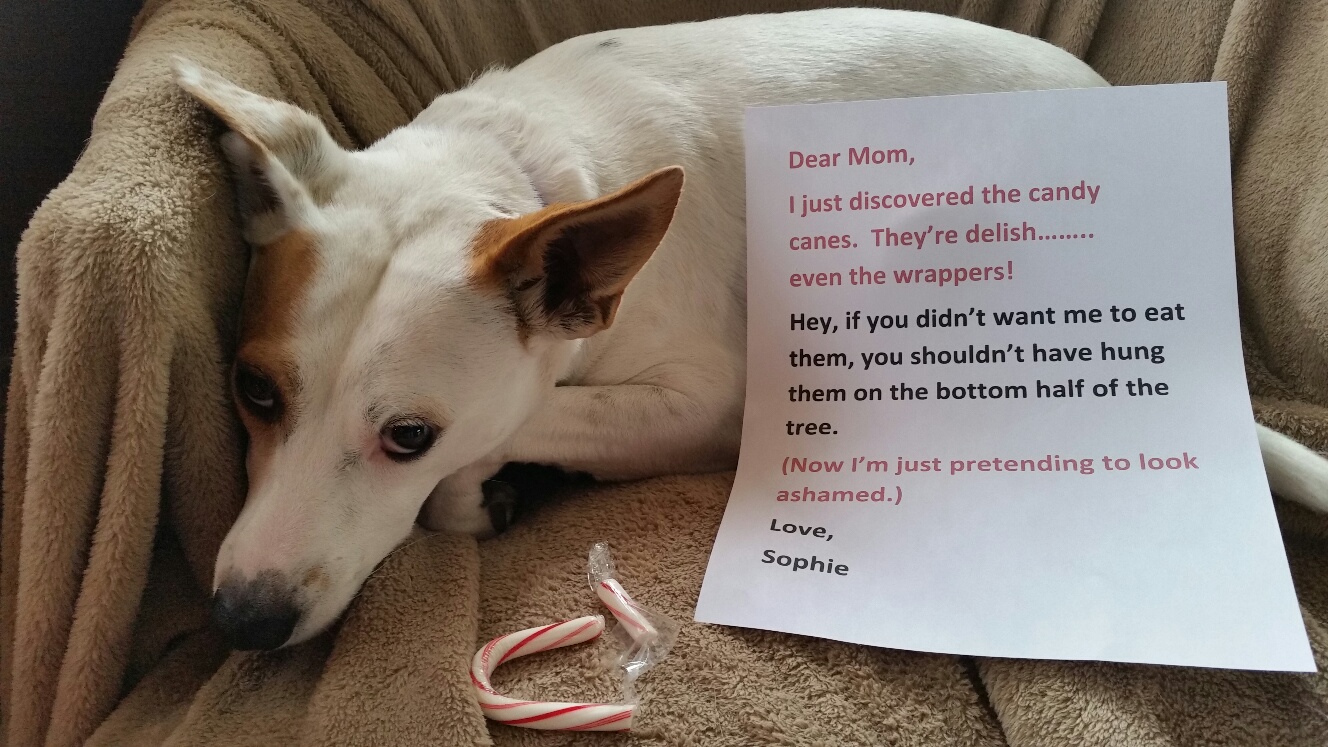 Dear Mom,
I just discovered the candy
canes.  They’re delish........
even the wrappers!
Hey, if you didn’t want me to eat
them, you shouldn’t have hung
them on the bottom half of the
tree.
(Now I’m just pretending to look
ashamed.)
Love,
Sophie